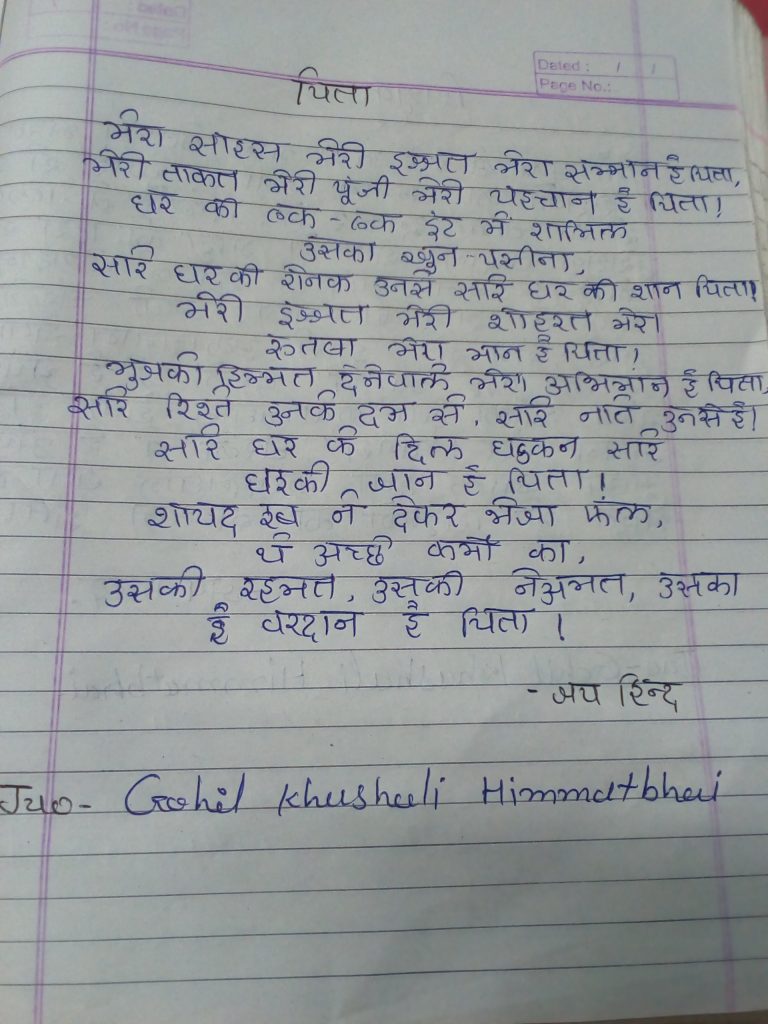 Dated: / /
Page No.:
पिता
मेरा साहस मेरी इज्जत मेरा सम्मान है पिता,
मेरी ताकत मेरी पूंजी मेरी पहचान है पिता!
घर की एक-एक ईंट में शामिल
उसका खून-पसीना,
सारे घर की रौनक उनसे सारे घर की शान पिता!
मेरी इज्जत मेरी शोहरत मेरा
रुतबा मेरा मान है पिता!
मुजकी हिम्मत देनेवाले मेरा अभिमान है पिता,
सारे रिश्ते उनके दम से, सारे नाते उनसे है।
सारे घर के दिल धडकन सारे
घरकी जान है पिता!
शायद रब ने देकर भेजा फल,
ये अच्छे कर्मों का,
उसकी रहमत, उसकी नेअमत, उसका
है वरदान है पिता!
- जय हिन्द
Gohil Khushali Himmatbhai